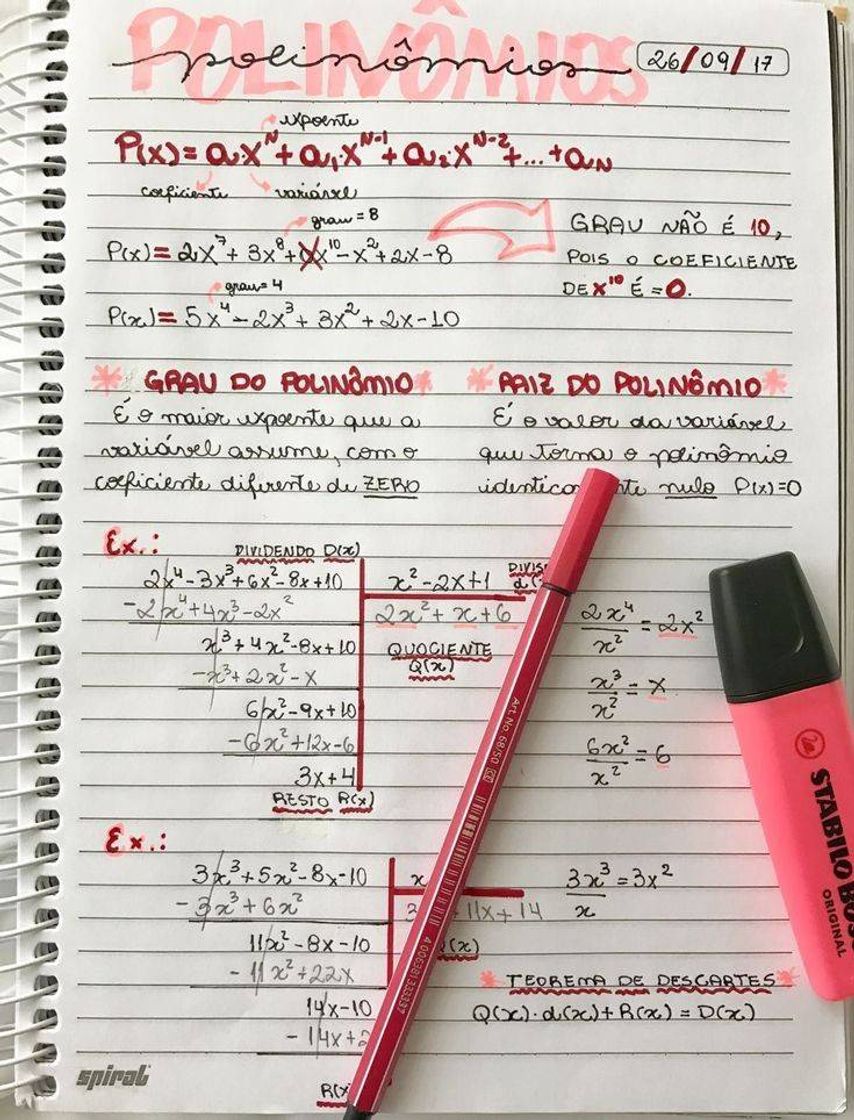 POLINÔMIOS
polinômios
26/09/17
expoente
P(x) = a.x^N + a₁.x^N-1 + a₂.x^N-2 + ... + aN
coeficiente variável
grau = 8
P(x) = 2x⁷ + 3x⁸ + 0x¹⁰ - x² + 2x - 8
GRAU NÃO É 10,
POIS O COEFICIENTE
DE x¹⁰ É = 0.
grau = 4
P(x) = 5x⁴ - 2x³ + 3x² + 2x - 10
* GRAU DO POLINÔMIO *
É o maior expoente que a
variável assume, com o
coeficiente diferente de ZERO
* RAIZ DO POLINÔMIO *
É o valor da variável
que torna o polinômio
nulo P(x)=0
Ex.:
DIVIDENDO D(x)
2x⁴ - 3x³ + 6x² - 8x + 10
x² - 2x + 1
-2x⁴ + 4x³ - 2x²
2x² + x + 6
x³ + 4x² - 8x + 10
QUOCIENTE
Q(x)
-x³ + 2x² - x
6x² - 9x + 10
-6x² + 12x - 6
3x + 4
RESTO R(x)
2x⁴/x² = 2x²
x³/x² = x
6x²/x² = 6
Ex.:
3x³ + 5x² - 8x - 10
x
-3x³ + 6x²
3 + 11x + 14
11x² - 8x - 10
(x)
-11x² + 22x
14x - 10
-14x + 2
R(x
3x³/x = 3x²
* TEOREMA DE DESCARTES *
Q(x) . d(x) + R(x) = D(x)
spiral
Art. No. 68/50
4 006381 333337
STABILO BOSS
ORIGINAL